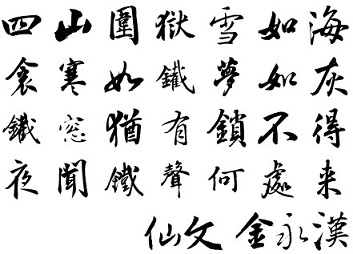 四山圍獄雪如海
衾寒如鐵夢如灰
鐵窓猶有鎖不得
夜聞鐵聲何處来
仙文 金永漢